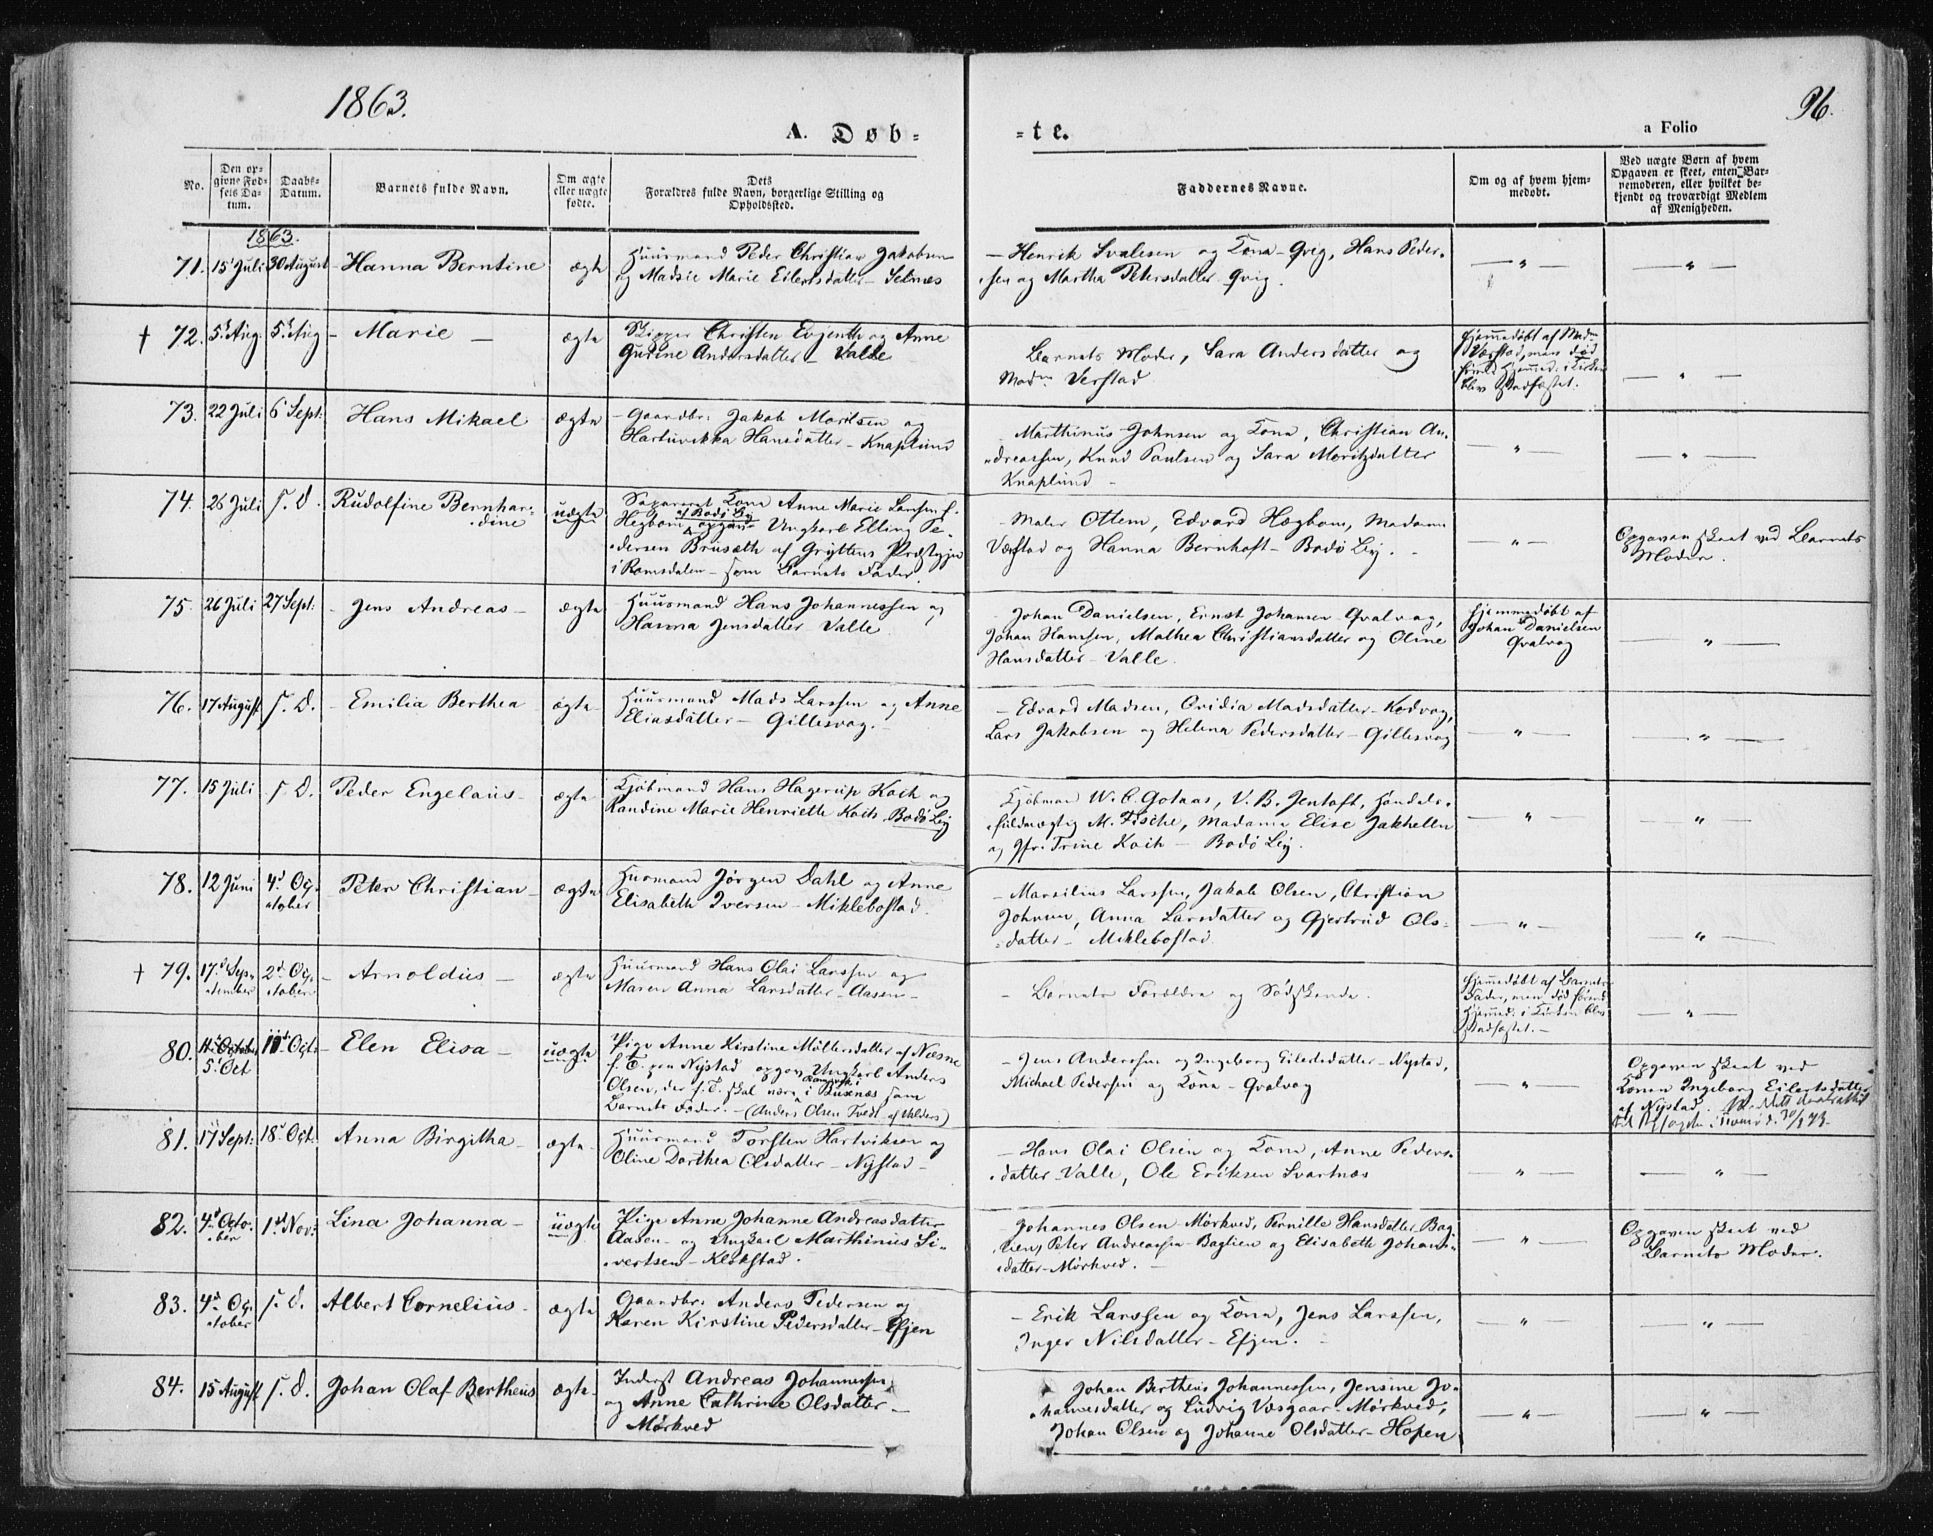 1863.
96.
A. Døb-
-te.
a Folio
No.
Den op-
givne Fød-
sels Da-
tum.
Daabs-
Datum.
Barnets fulde Navn.
Om ægte
eller uægte
fødte.
Dets
Forældres fulde Navn, borgerlige Stilling og
Opholdssted.
Faddernes Navne.
Om og af hvem hjem-
medøbt.
Ved uægte Børn af hvem
Opgaven er skeet, enten Bar-
nemoderen, eller hvilket be-
kjendt og troværdigt Medlem
af Menigheden.
1863.
71. 15 Juli 30 August Hanna Berntine ægte
Huusmand Peder Christian Jakobsen
og Madsie Marie Eilertsdatter - Selnæs
- Henrik Svalesen og Kona - Qvig, Hans Peder-
sen og Martha Petersdatter Qvig.
— " —
— " —
† 72. 5t Aug. 5t Aug - Marie — ægte
Skipper Christen Evjenth og Anne
Gurine Andersdatter - Valle
Barnets Moder, Sara Andersdatter og
Madm Verstad
Hjemmedøbt af Madm
Værstad, men død
førend Hjemmed. i Kirken
blev stadfæstet.
— " —
73. 22 Juli 6 Sept: Hans Mikael ægte
- Gaardbr: Jakob Moritsen og
Hartuvikka Hansdatter - Knaplund
- Marthinus Johnsen og Kona, Christian An-
dreassen, Knud Paulsen og Sara Moritzdatter
Knaplund -
— " —
— " —
74. 26 Juli s. D. Rudolfine Bernhar-
dine uægte
Separeret Kone Anne Marie Larsen f.
Hegbom af Bodø By opgav Ungkarl Elling Pe-
dersen Brusæth af Gryttens Præstegjen
i Romsdalen - som Barnets Fader.
- Maler Ottem, Edvard Hægbom, Madame
Værstad og Hanna Bernhoft - Bodø By. -
— " —
Opgaven skeet ved Barnets
Moder.
75. 26 Juli 27 Sept: - Jens Andreas - ægte
Huusmand Hans Johannessen og
Hanna Jensdatter Valle
- Johan Danielsen, Ernst Johansen Qvalvag,
Johan Hanssen, Mathea Christiansdatter og Oline
Hansdatter - Valle.
Hjemmedøbt af
Johan Danielsen
Qvalvag
— " —
76. 17 August s. D. - Emilia Berthea ægte
Huusmand Mads Larssen og Anne
Eliasdatter - Gillesvag. -
- Edvard Madsen, Ovidia Madsdatter - Kodvag,
Lars Jakobsen og Helena Pedersdatter - Gillesvag
— " —
— " —
77. 15 Juli s. D. Peder Engelaus - ægte
Kjøbmand Hans Hagerup Koch og
Randine Marie Henriette Koch Bodø By
Kjøbman W. C. Gotaas, V. B. Jentoft, Handels-
fuldmægtig M. Fische, Madame Elise Jakhelln
og Jfr: Trine Koch - Bodø By.
— " —
— " —
78. 12 Juni 4d. Oc-
tober Peter Christian - ægte
Husmand Jørgen Dahl og Anne
Elisabeth Iversen - Miklebostad.
- Marsilius Larssen, Jakob Olsen, Christian
Johnsen, Anna Larsdatter og Gjertrud Ols-
datter - Miklebostad.
— " —
— " —
† 79. 17d Sep-
tember 2d. Oc-
tober - Arnoldus - ægte
Huusmand Hans Olai Larssen og
Maren Anna Larsdatter - Aasen -
- Barnets Forældre og Sødskende.
Hjemmedøbt af Barnets
Fader, men død førend
Hjemmed. i Kirken blev
stadfæstet. -
— " —
80. 5. Oct 11 Oct: - Elen Elisa - uægte
Pige Anne Kirstine Möllersdatter af Næsne
f. T. paa Nystad opgav Ungkarl Anders
Olsen, der f. T. skal være i Buxnæs som
Barnets Fader. - (Anders Olsen Tvedt af Valders)
- Jens Anderssen og Ingeborg Eiledsdatter - Nystad,
Michael Pedersen og Kona - Qvalvag
— " —
Opgaven skeet ved
Konen Ingeborg Eilertsdatter
af Nystad.
81. 17 Sept: 18. Oct: Anna Birgitha - ægte.
Huusmand Torsten Hartviksen og
Oline Dorthea Olsdatter - Nystad -
- Hans Olai Olsen og Kona, Anne Peders-
datter - Valle, Ole Eriksen Svartnæs
"
— " —
82. 4d Octo-
ber 1d Nov: Lina Johanna - uægte
Pige Anne Johanne Andreasdatter
Aasen - og Ungkarl Marthinus Si-
vertsen - Klokstad.
Johannes Olsen Mørkved, Pernille Hansdatter Bag-
lien, Peter Andreassen - Baglien og Elisabeth Johans-
datter - Mørkved. -
— " —
Opgaven skeet ved
Barnets Moder.
83. 4d Oc-
tober s. d. Albert Cornelius - ægte
Gaardbr: Anders Pedersen og
Karen Kirstine Pedersdatter - Efjen
- Erik Larssen og Kona, Jens Larssen,
Inger Nilsdatter - Efjen. -
— " —
— " —
84. 15 August s. d. Johan Olaf Bertheus ægte.
Inderst Andreas Johannesen
og Anne Cathrine Olsdatter -
Mørkved
Johan Bertheus Johannessen, Jensine Jo-
hannesdatter og Ludvig Vasgaar - Mørkved,
Johan Olsen og Johanne Olsdatter - Hopen
— " —
— " —